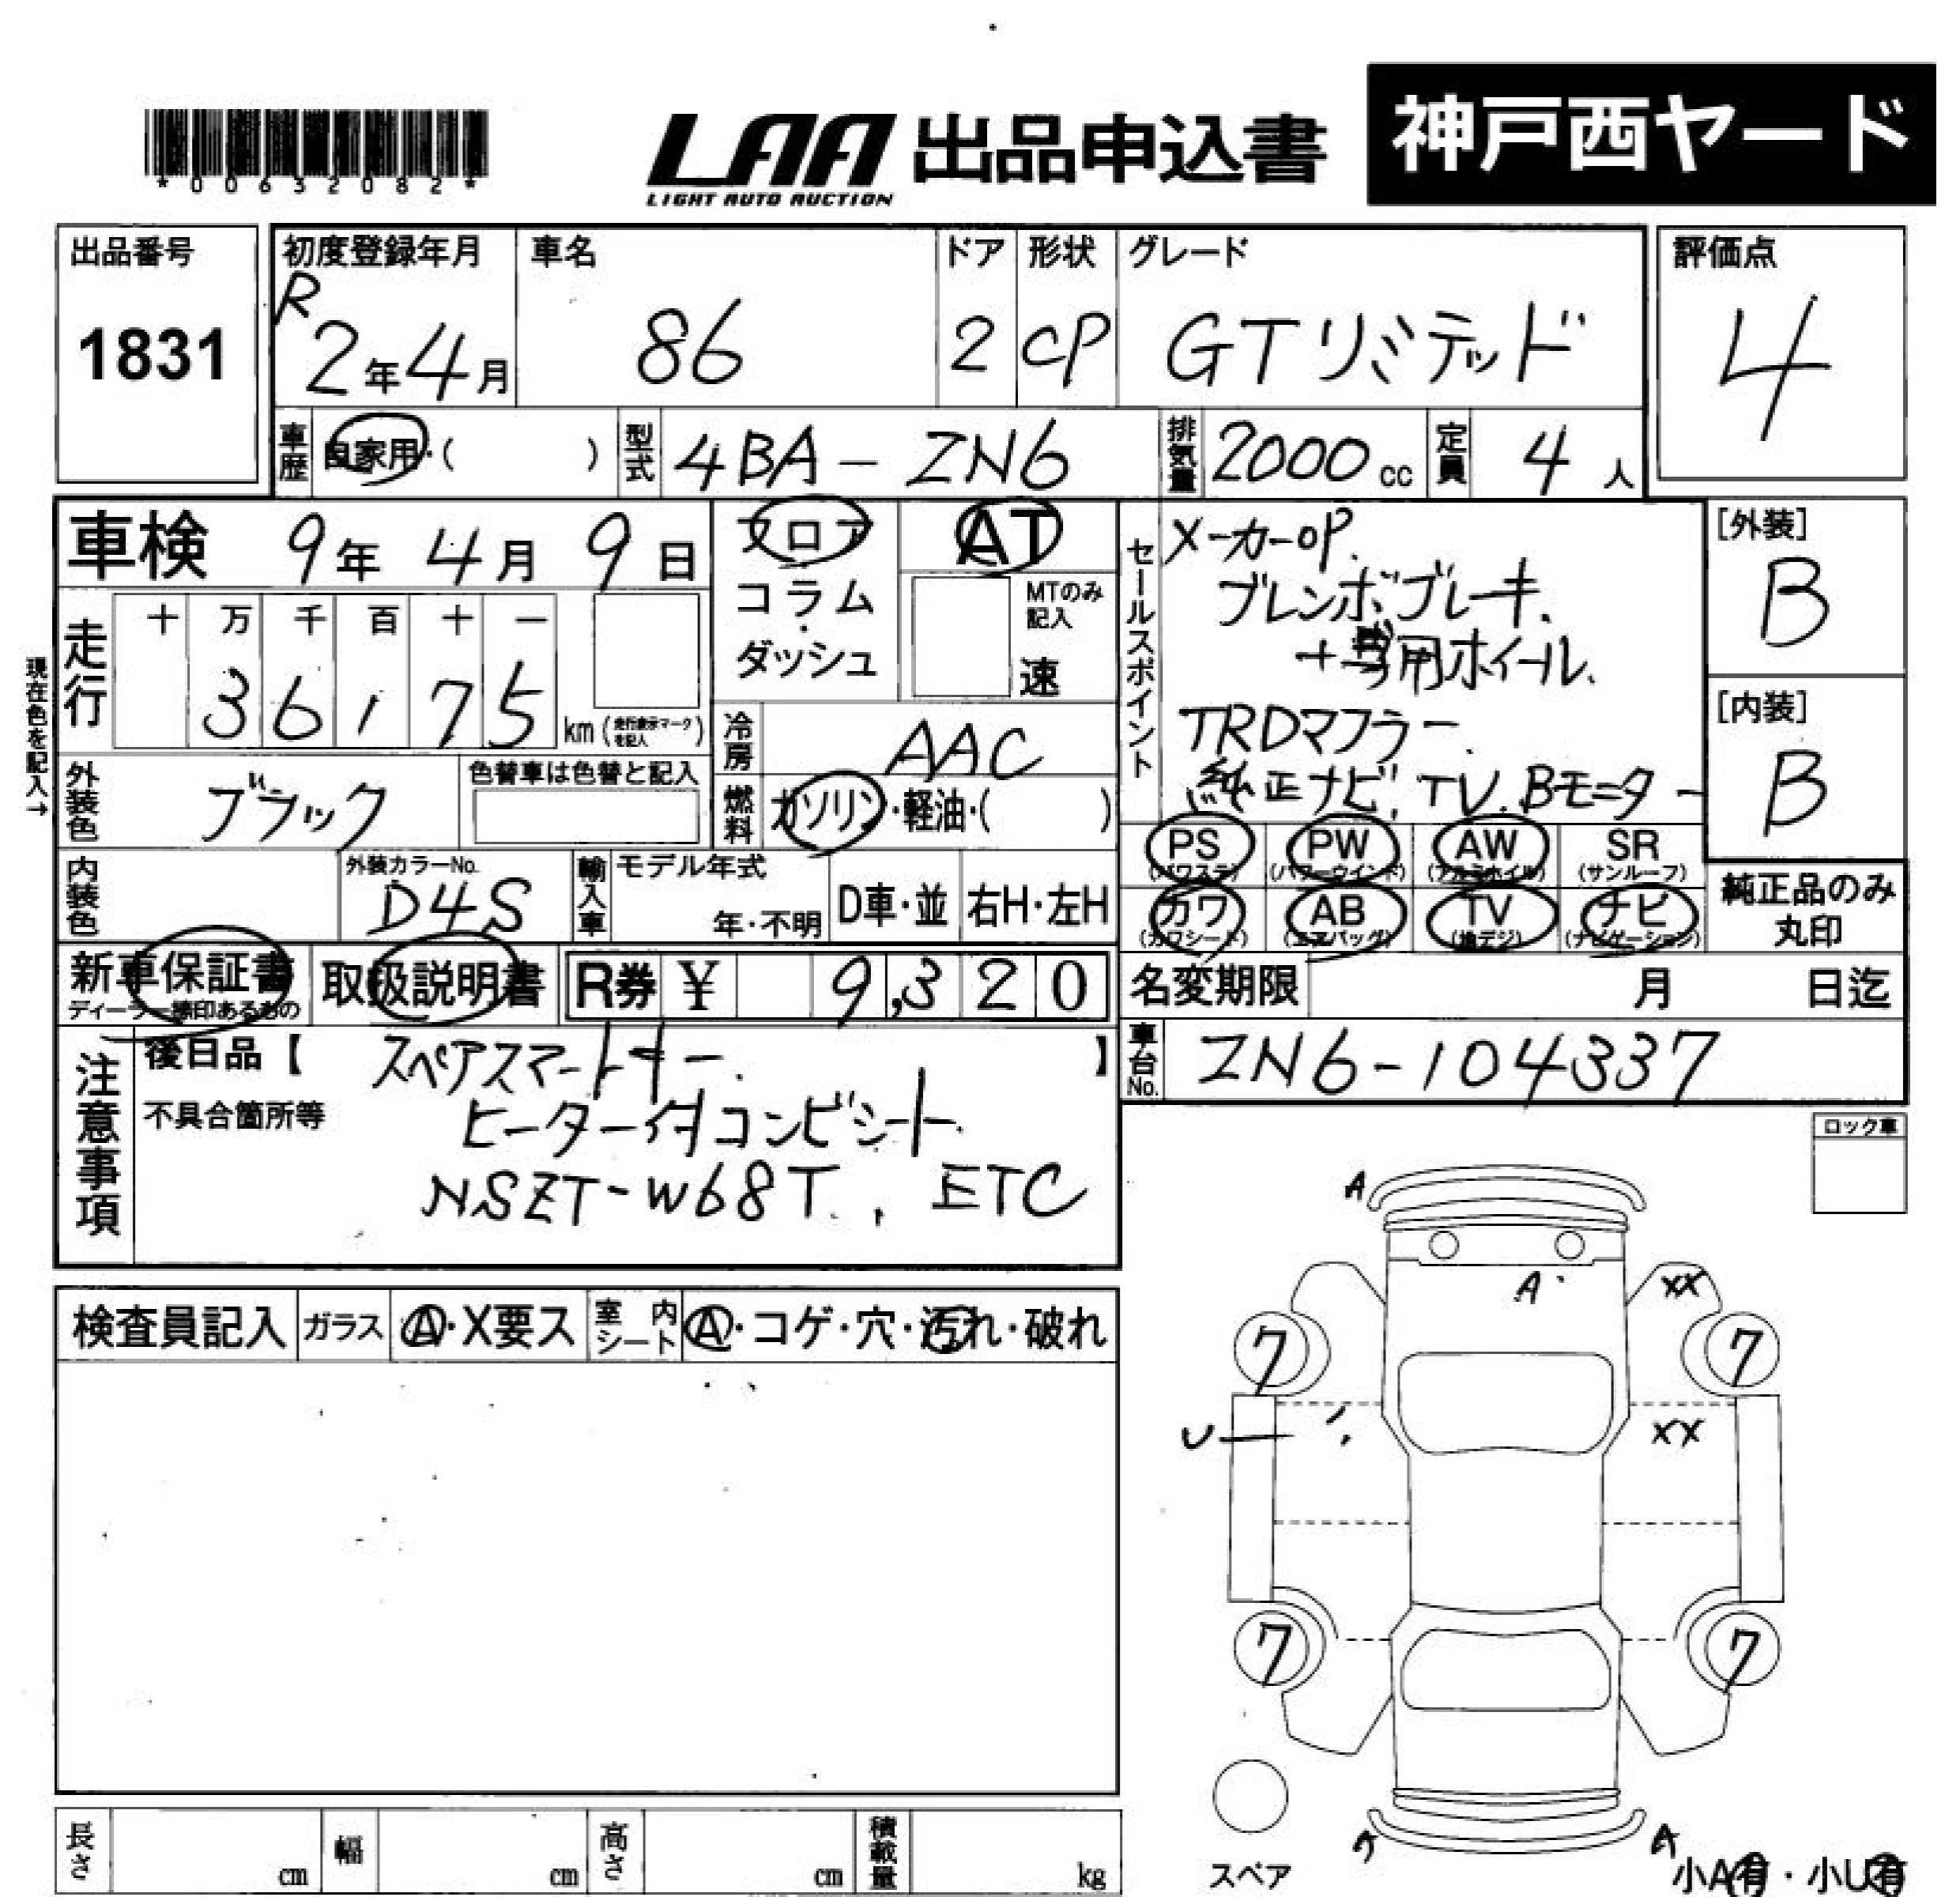 *00632082*
LAA 出品申込書 神戸西ヤード
LIGHT AUTO AUCTION
出品番号 1831
初度登録年月 R2年4月
車名 86
ドア 2
形状 CP
グレード GTリミテッド
評価点 4
車歴 自家用・( )
型式 4BA-ZN6
排気量 2000cc
定員 4人
車検 9年4月9日
フロア
コラム
・
ダッシュ
AT
MTのみ
記入
速
現在色を記入→
走行 十 万 千 百 十 一
36,175 km(走行表示マークを記入)
冷房 AAC
燃料 ガソリン・軽油・( )
外装色 ブラック
色替車は色替と記入
内装色
外装カラーNo. D4S
輸入車 モデル年式 年・不明 D車・並 右H・左H
セールスポイント
メーカーOP.
ブレンボブレーキ.
+専用ホイール.
TRDマフラー.
純正ナビ, TV. Bモニター
[外装] B
[内装] B
PS (パワステ) PW (パワーウインド) AW (アルミホイル) SR (サンルーフ)
カワ (カワシート) AB (エアバッグ) TV (地デジ) ナビ (ナビゲーション)
純正品のみ
丸印
新車保証書
ディーラー捺印あるもの
取扱説明書
R券 ¥ 9,320
名変期限 月 日迄
車台No. ZN6-104337
注意事項
後日品【 スペアスマートキー. 】
不具合箇所等
ヒーター付コンビシート.
NSZT-W68T. , ETC
ロック車
検査員記入 ガラス A・X要ス 室内シート A・コゲ・穴・汚れ・破れ
A
A XX
7 7
U XX
7 7
A
スペア
小A有・小U有
長さ cm 幅 cm 高さ cm 積載量 kg